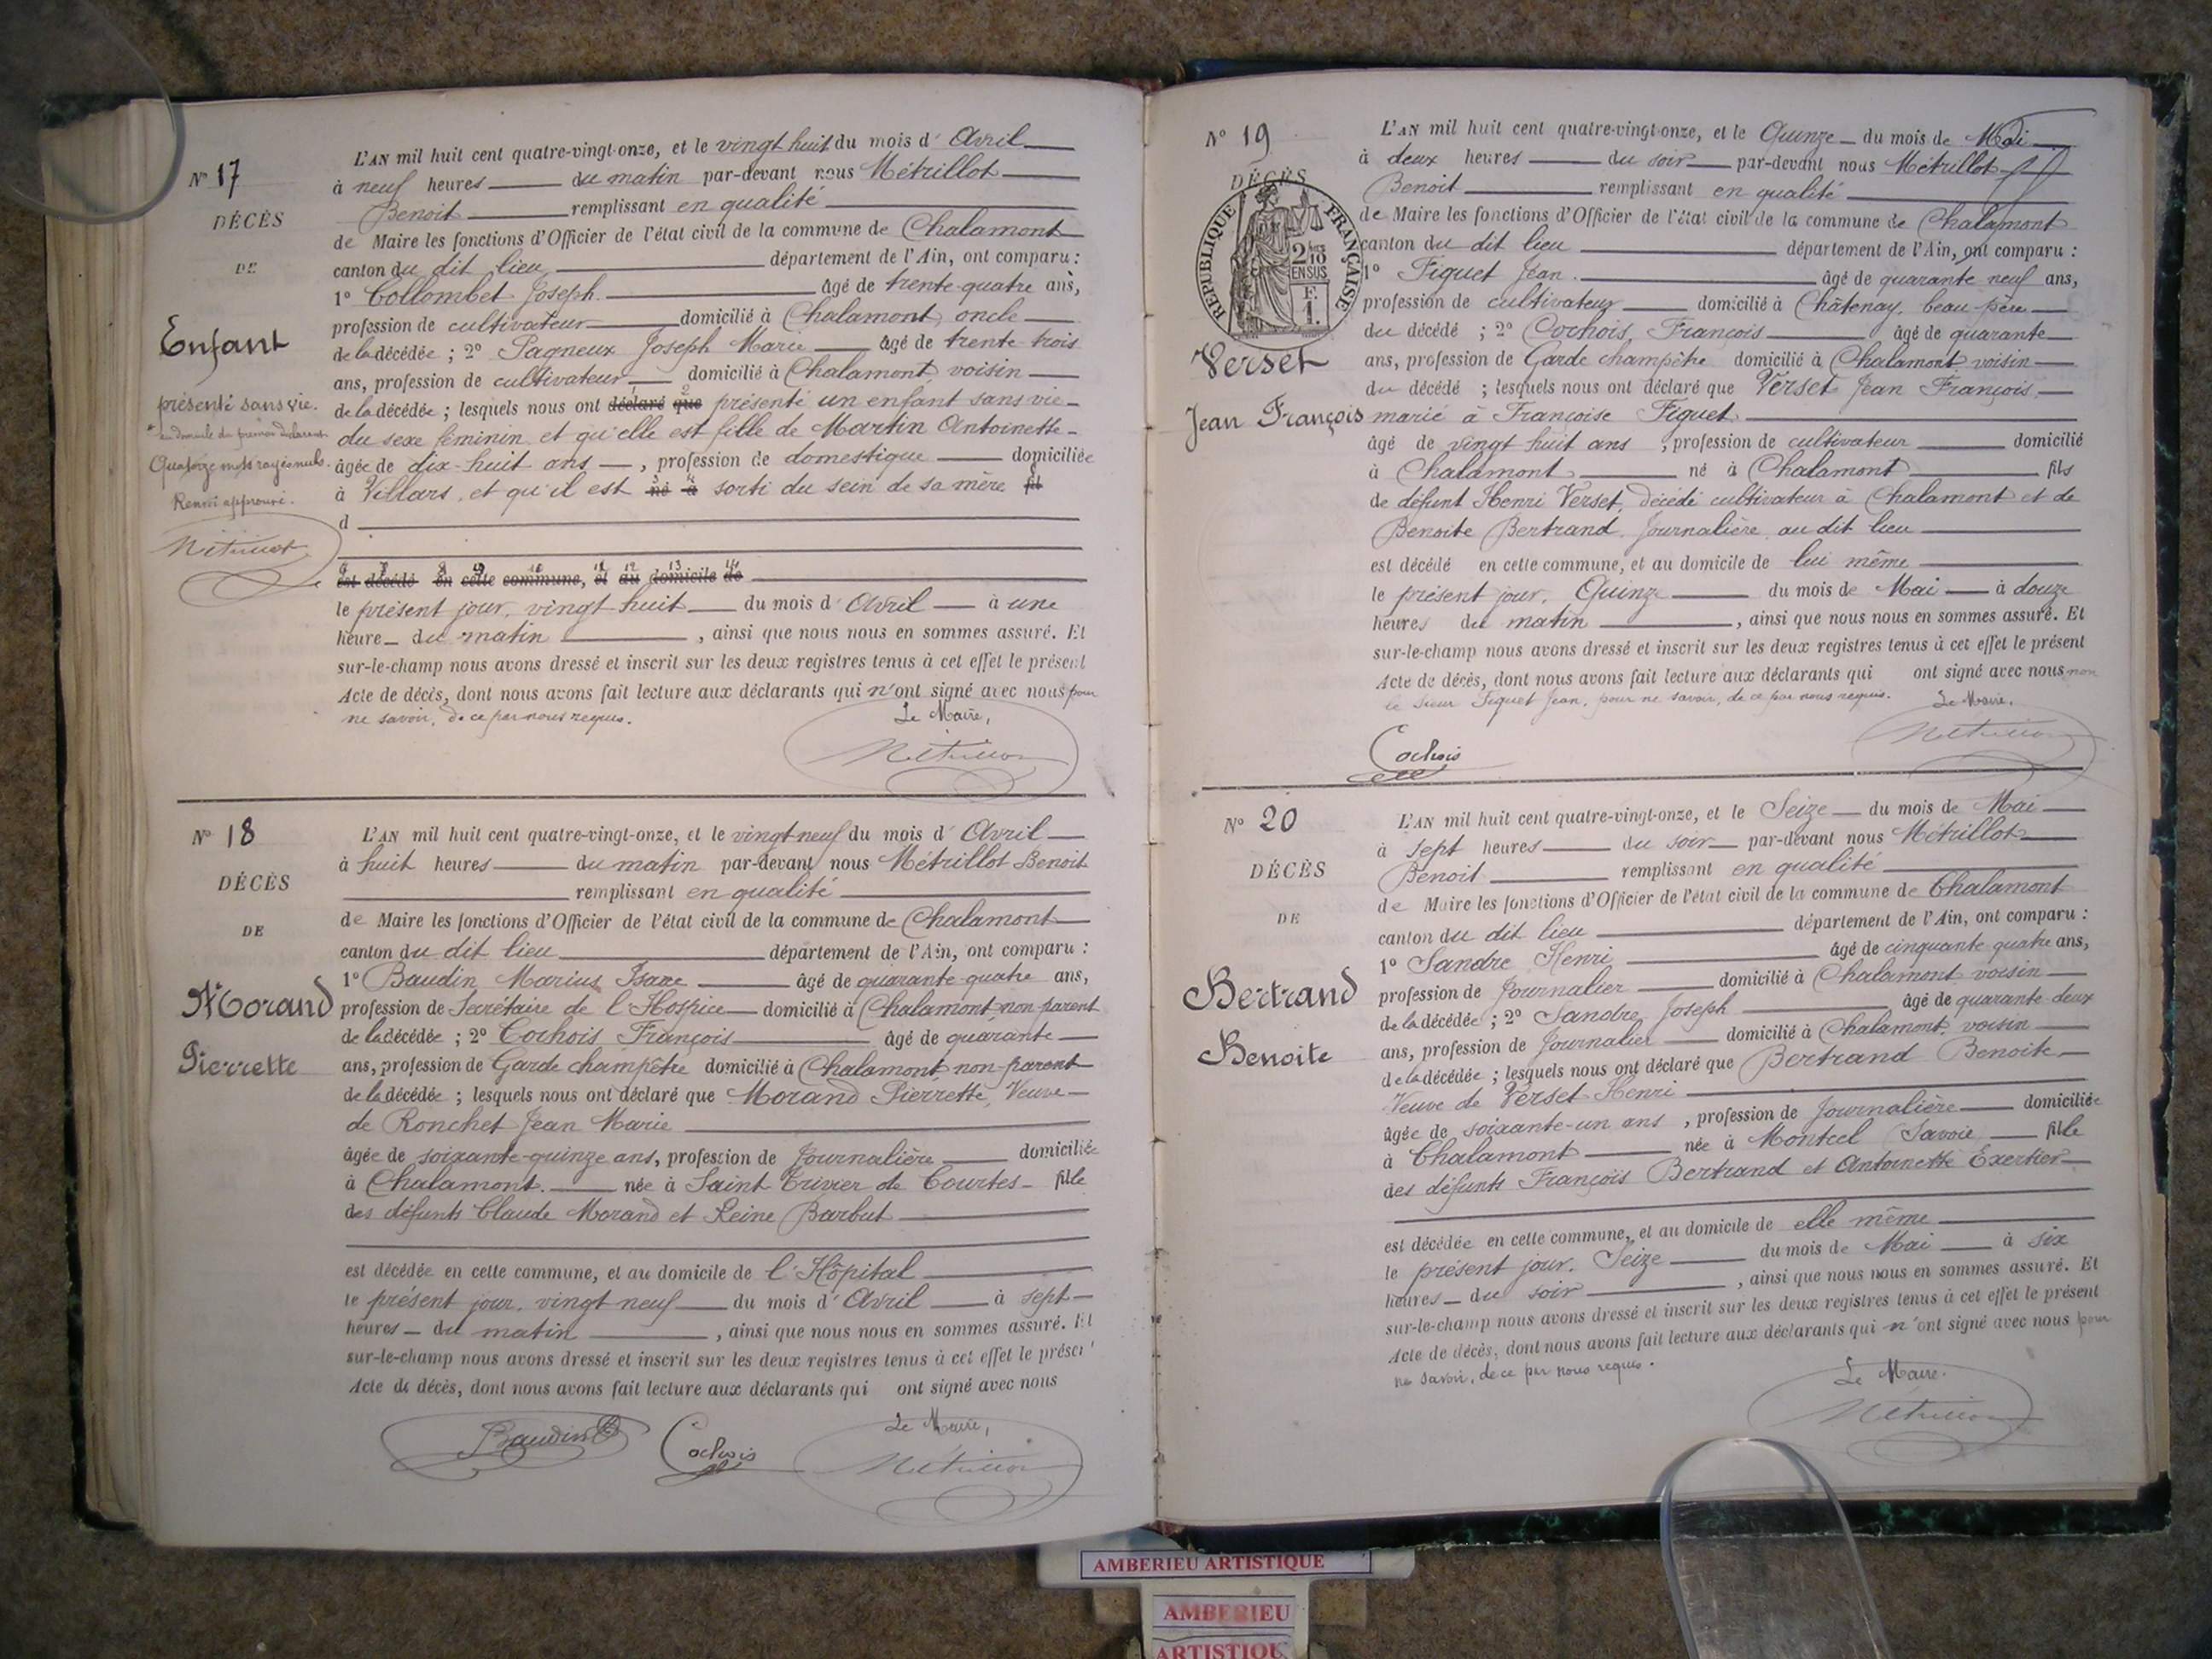 N° 17
DÉCÈS
DE
Enfant
présenté sans vie.
* au domicile du premier déclarant
Quatorze mots rayés nuls.
Renvoi approuvé.
Métrillot
L'AN mil huit cent quatre-vingt-onze, et le vingt huit du mois d'Avril
à neuf heures du matin par-devant nous Métrillot
Benoit remplissant en qualité
de Maire les fonctions d'Officier de l'état civil de la commune de Chalamont
canton du dit lieu département de l'Ain, ont comparu :
1° Collombet Joseph âgé de trente-quatre ans,
profession de cultivateur domicilié à Chalamont, oncle
de la décédée ; 2° Pagneux Joseph Marie âgé de trente trois
ans, profession de cultivateur domicilié à Chalamont, voisin
de la décédée ; lesquels nous ont déclaré que présenté un enfant sans vie
du sexe féminin et qu'elle est fille de Martin Antoinette
âgée de dix-huit ans, profession de domestique domiciliée
à Villars, et qu'il est né à sorti du sein de sa mère fil
d
est décédé en cette commune, et au domicile de
le présent jour, vingt huit du mois d'Avril à une
heure du matin, ainsi que nous nous en sommes assuré. Et
sur-le-champ nous avons dressé et inscrit sur les deux registres tenus à cet effet le présent
Acte de décès, dont nous avons fait lecture aux déclarants qui n'ont signé avec nous pour
ne savoir, de ce par nous requis.
Le Maire,
Métrillot
N° 18
DÉCÈS
DE
Morand
Pierrette
L'AN mil huit cent quatre-vingt-onze, et le vingt neuf du mois d'Avril
à huit heures du matin par-devant nous Métrillot Benoit
remplissant en qualité
de Maire les fonctions d'Officier de l'état civil de la commune de Chalamont
canton du dit lieu département de l'Ain, ont comparu :
1° Baudin Marius Isaac âgé de quarante-quatre ans,
profession de Secrétaire de l'Hospice domicilié à Chalamont, non parent
de la décédée ; 2° Cochois François âgé de quarante
ans, profession de Garde champêtre domicilié à Chalamont non-parent
de la décédée ; lesquels nous ont déclaré que Morand Pierrette, Veuve
de Ronchet Jean Marie
âgée de soixante-quinze ans, profession de Journalière domiciliée
à Chalamont. née à Saint Trivier de Courtes fille
des défunts Claude Morand et Reine Barbut
est décédée en cette commune, et au domicile de l'Hôpital
le présent jour, vingt neuf du mois d'Avril à sept
heures du matin, ainsi que nous nous en sommes assuré. Et
sur-le-champ nous avons dressé et inscrit sur les deux registres tenus à cet effet le présent
Acte de décès, dont nous avons fait lecture aux déclarants qui ont signé avec nous
Le Maire,
Baudin Cochois Métrillot
N° 19
DÉCÈS
RÉPUBLIQUE FRANÇAISE
2/10
EN SUS
Verset
Jean François
L'AN mil huit cent quatre-vingt-onze, et le Quinze du mois de Mai
à deux heures du soir par-devant nous Métrillot
Benoit remplissant en qualité
de Maire les fonctions d'Officier de l'état civil de la commune de Chalamont
canton du dit lieu département de l'Ain, ont comparu :
1° Figuet Jean. âgé de quarante neuf ans,
profession de cultivateur domicilié à Châtenay, beau-père
du décédé ; 2° Cochois François âgé de quarante
ans, profession de Garde champêtre domicilié à Chalamont voisin
du décédé ; lesquels nous ont déclaré que Verset Jean François,
marié à Françoise Figuet
âgé de vingt huit ans, profession de cultivateur domicilié
à Chalamont né à Chalamont fils
de défunt Henri Verset, décédé cultivateur à Chalamont et de
Benoite Bertrand, Journalière au dit lieu
est décédé en cette commune, et au domicile de lui même
le présent jour, Quinze du mois de Mai à douze
heures du matin, ainsi que nous nous en sommes assuré. Et
sur-le-champ nous avons dressé et inscrit sur les deux registres tenus à cet effet le présent
Acte de décès, dont nous avons fait lecture aux déclarants qui ont signé avec nous non
le sieur Figuet Jean, pour ne savoir, de ce par nous requis.
Le Maire,
Cochois Métrillot
N° 20
DÉCÈS
DE
Bertrand
Benoite
L'AN mil huit cent quatre-vingt-onze, et le Seize du mois de Mai
à sept heures du soir par-devant nous Métrillot
Benoit remplissant en qualité
de Maire les fonctions d'Officier de l'état civil de la commune de Chalamont
canton du dit lieu département de l'Ain, ont comparu :
1° Sandre Henri âgé de cinquante quatre ans,
profession de Journalier domicilié à Chalamont voisin
de la décédée ; 2° Sandre Joseph âgé de quarante-deux
ans, profession de Journalier domicilié à Chalamont, voisin
de la décédée ; lesquels nous ont déclaré que Bertrand Benoite
Veuve de Verset Henri
âgée de soixante-un ans, profession de Journalière domiciliée
à Chalamont née à Montcel (Savoie fille
des défunts François Bertrand et Antoinette Exertier
est décédée en cette commune, et au domicile de elle même
le présent jour, Seize du mois de Mai à six
heures du soir, ainsi que nous nous en sommes assuré. Et
sur-le-champ nous avons dressé et inscrit sur les deux registres tenus à cet effet le présent
Acte de décès, dont nous avons fait lecture aux déclarants qui n'ont signé avec nous pour
ne savoir, de ce par nous requis.
Le Maire.
Métrillot
AMBERIEU ARTISTIQUE
AMBERIEU
ARTISTIQU